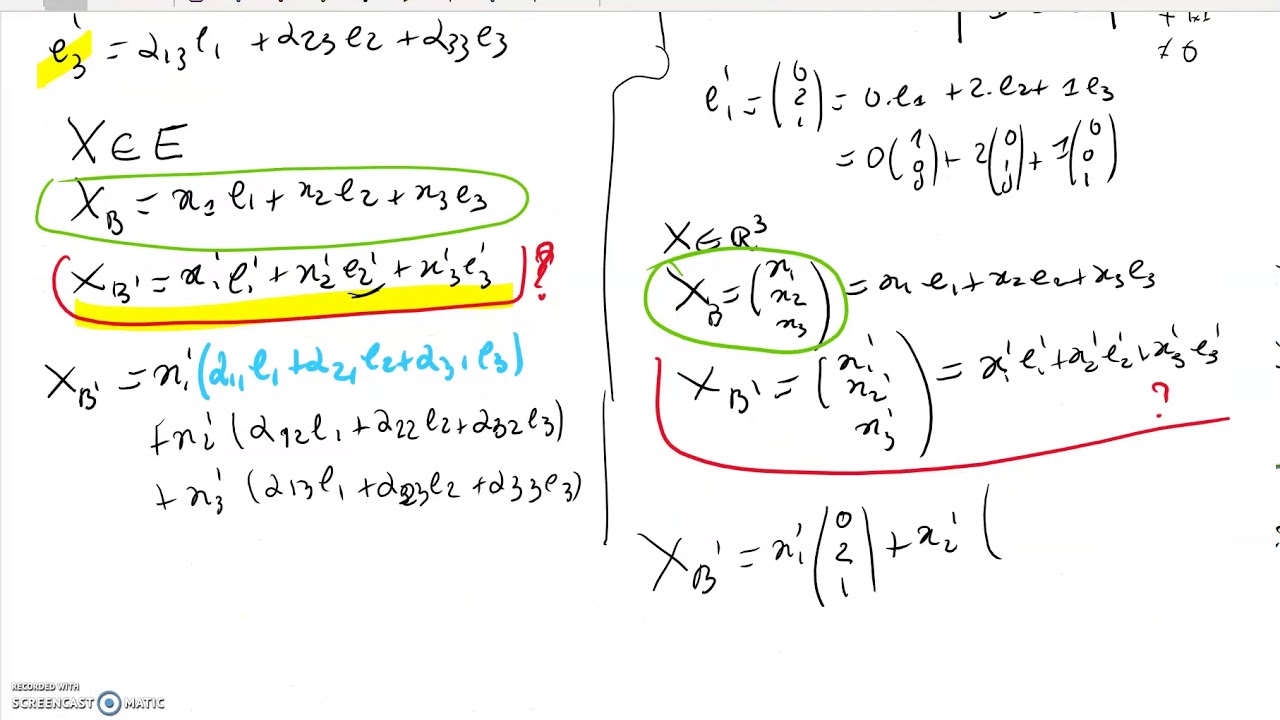 e₃' = α₁₃e₁ + α₂₃e₂ + α₃₃e₃
X ∈ E
X_B = x₁e₁ + x₂e₂ + x₃e₃
X_B' = x₁'e₁' + x₂'e₂' + x₃'e₃' ?
X_B' = x₁'(α₁₁e₁ + α₂₁e₂ + α₃₁e₃)
+ x₂'(α₁₂e₁ + α₂₂e₂ + α₃₂e₃)
+ x₃'(α₁₃e₁ + α₂₃e₂ + α₃₃e₃)
≠ 0
e₁' = (0 2 1) = 0.e₁ + 2.e₂ + 1e₃
= 0(1 0 0) + 2(0 1 0) + 1(0 0 1)
X ∈ ℝ³
X_B = (x₁ x₂ x₃) = x₁e₁ + x₂e₂ + x₃e₃
X_B' = (x₁' x₂' x₃') = x₁'e₁' + x₂'e₂' + x₃'e₃'
?
X_B' = x₁'(0 2 1) + x₂'(
RECORDED WITH
SCREENCAST MATIC